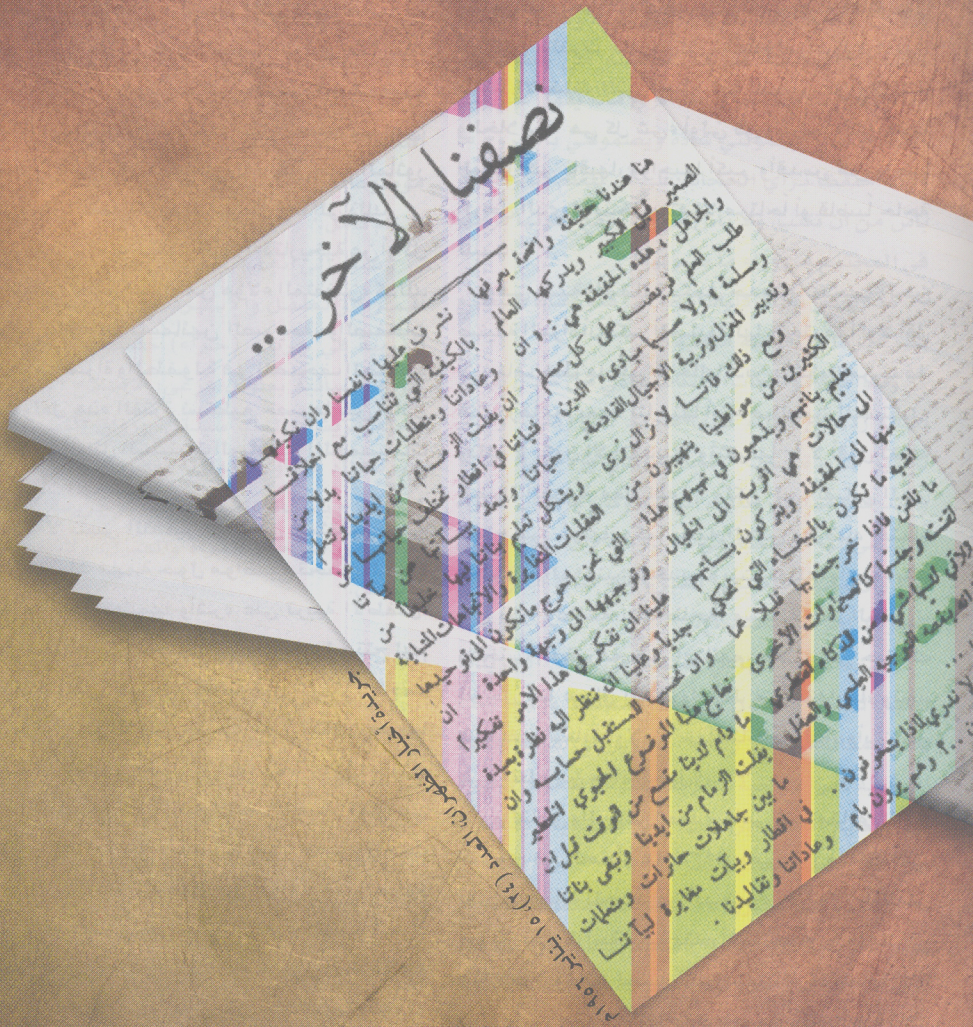 نصفنا الآخر ..
هنا عندنا حقيقة واضحة يعرفها
الصغير قبل الكبير ويدركها العالم
والجاهل ، هذه الحقيقة هي : « ان
طلب العلم فريضة على كل مسلم
ومسلمة » ولا سيما مبادىء الدين
وتدبير المنزل وتربية الاجيال القادمة.
ومع ذلك فاننا لا نزال نرى
الكثيرين من مواطنينا يتهيبون من
تعليم بناتهم ويذهبون في تهيبهم هذا
الى حالات هي اقرب الى الخيال
منها الى الحقيقة ويتركون بناتهم
اشبه ما تكون بالببغاء التي تحكي
ما تلقن فاذا خرجت بها قليلا عما
لقنت وجدتها كالصخر
من الذكاء الفطري
ينقصه التوجيه العلمي والعقلي
لا ندري لماذا يتخوفون ..
وهم يرون بأم
نشرف عليها بانفسنا وان نكيفها
بالكيفية التي تتناسب مع اخلاقنا
وعاداتنا ومتطلبات حياتنا بدلا من
ان يفلت الزمام من ايدينا وتتعلم
فتياتنا في اقطار تختلف حياتها عن
حياتنا وتبعد
ويشكل تعليم بناتنا فيها خليطا من
العقليات المتغايرة والاتجاهات المتباينة
التي نحن احوج ما نكون الى توحيدها
وتوجيهها الى وجهة واحدة . ان
علينا ان نفكر في هذا الامر تفكيرا
جديا وعلينا ان ننظر اليه نظرة بعيدة
وان نحسب للمستقبل حسابه وان
نعالج هذا الموضوع الحيوي الخطير
ما دام لدينا متسع من الوقت قبل ان
يفلت الزمام من ايدينا وتبقى بناتنا
ما بين جاهلات حائرات ومتعلمات
في اقطار وبيآت مغايرة لبيآتنا
وعاداتنا وتقاليدنا .
جريدة أخبار الظهران، العدد (٢٤)، ١٥ يناير ١٩٥٦م